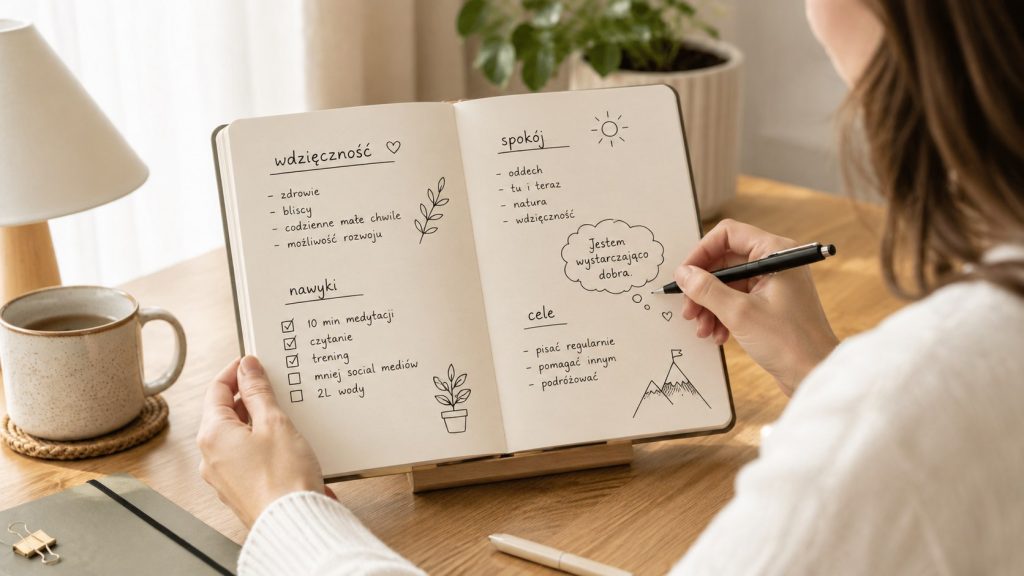 wdzięczność
- zdrowie
- bliscy
- codzienne małe chwile
- możliwość rozwoju
nawyki
10 min medytacji
czytanie
trening
mniej social mediów
2L wody
spokój
- oddech
- tu i teraz
- natura
- wdzięczność
Jestem
wystarczająco
dobra.
cele
- pisać regularnie
- pomagać innym
- podróżować